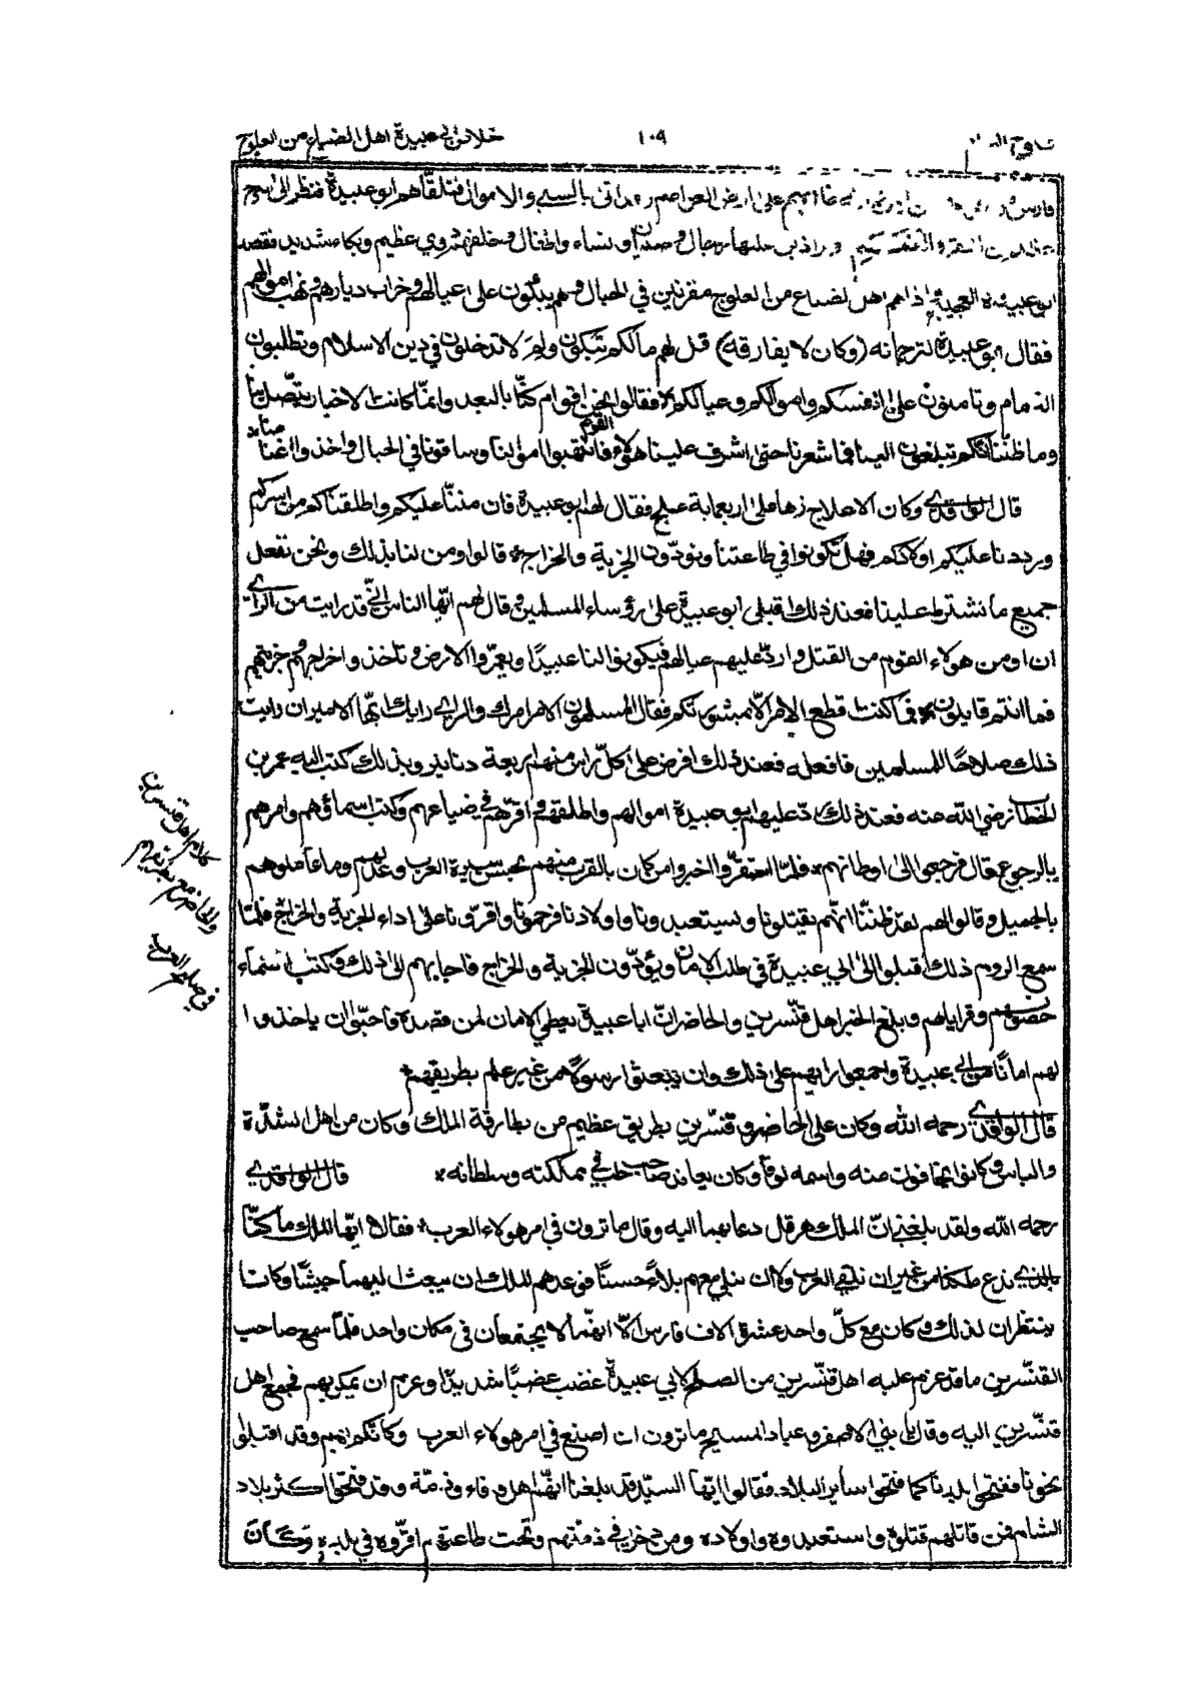 فتوح ال ١٠٩ خلائق ابي عبيدة اهل الضياع من العلوج
فارس على ارض العواصم واتى بالسبي والاموال فتلقّاهم ابو عبيدة فنظر الى
البقر والغنم واذ بين عليها رجال وصبيان ونساء واطفال وخلفهم دوي عظيم وبكاء شديد فقصد
ابو عبيدة العجيبة اذا هم اهل لضياع من العلوج مقرنين في الحبال وهم يبكون على عيالهم وخراب ديارهم ونهب اموالهم
فقال ابو عبيدة لترجمانه (وكان لا يفارقه) قل لهم ما لكم تبكون ولم لا تدخلون في دين الاسلام وتطلبون
الذمام وتامنون على انفسكم واموالكم وعيالكم * فقالوا نحن اقوام كنّا بالبعد وانمّا كانت الاخبار يتّصل بنا
وما ظننّا انكم تبلغون الينا فما شعرنا حتى اشرف علينا هؤلاء القوم فانتهبوا اموالنا وساقونا في الحبال واخذوا اغنامنا
قال الواقدي وكان الاعلاج زهاء على اربعماية علج فقال لهم ابو عبيدة فان مننّا عليكم واطلقناكم من اسركم
ورددنا عليكم اولادكم فهل تكونوا في طاعتنا وتؤدّون الجزية والخراج * قالوا ومن لنا بذلك ونحن نفعل
جميع ما تشترط علينا فعند ذلك اقبل ابو عبيدة على رؤساء المسلمين وقال لهم ايّها الناس انّي قد رايت من الراي
ان اومن هؤلاء القوم من القتل واردّ عليهم عيالهم فيكونوا لنا عبيدًا ويعمّروا الارض وتاخذ واخراجهم وجزيتهم
فما انتم قايلون * فى كنت قطع الامر الّا بمشورتكم فقال المسلمون الامر امرك والراي رايك ايّها الامير ان رايت
ذلك صلاحًا للمسلمين فافعله فعند ذلك افرض على كلّ راس منهم اربعة دنانير وبذلك كتب اليه عمر بن
الخطاب رضي الله عنه فعند ذلك ردّ عليهم ابو عبيدة اموالهم واطلقهم واقرّهم في ضياعهم وكتب اسماؤهم وامرهم
بالرجوع قال فرجعوا الى اوطانهم * فلمّا استقرّوا اخبروا من كان بالقرب منهم بحسن سيرة العرب وعدلهم وما عاملوهم
بالجميل وقالوا لهم لقد ظننّا انّهم يقتلونا ويستعبدونا واولادنا فرحمونا واقرّونا على اداء الجزية والخراج فلمّا
سمع الروم ذلك اقبلوا الى ابي عبيدة في طلب الامان ويؤدّون الجزية والخراج فاجابهم الى ذلك وكتب اسماء
حصونهم وقراياهم وبلغ الخبر اهل قنّسرين والحاضر انّ ابا عبيدة يعطي الامان لمن قصده فاحبّوا ان ياخذوا
لهم امانًا من ابي عبيدة واجمعوا رايهم على ذلك وان يبعثوا رسولًا من غير علم بطريقهم *
قال الواقدي رحمه الله وكان على الحاضر وقنّسرين بطريق عظيم من بطارقة الملك وكان من اهل الشدّة
والباس وكانوا يخافون منه واسمه لوقا وكان يعاند صاحب حلب في مملكته وسلطانه * قال الواقدي
رحمه الله ولقد بلغني انّ الملك هرقل دعا بهما اليه وقال ما ترون في امر هولاء العرب * فقالا ايّها الملك ما كنّا
بالذي ندع ملكنا من غير ان نلقى العرب ولا ان نبلي معهم بلاءً حسنًا فوعدهم الملك ان يبعث اليهما جيشًا وكانا
ينتظران لذلك وكان مع كلّ واحد عشرة الاف فارس الّا انهّما لا يجتمعان في مكان واحد فلمّا سمع صاحب
القنّسرين ما قد عزم عليه اهل قنّسرين من الصلح لابي عبيدة غضب غضبًا شديدًا وعزم ان يمكر بهم فجمع اهل
قنّسرين اليه وقال يا بني الاصفر وعباد المسيح ما ترون ان اصنع في امر هولاء العرب وكانّكم بهم وقد اقبلوا
نحونا ففتحوا بلدنا كما فتحوا ساير البلاد. فقالوا ايّها السيّد قد بلغنا انهّم اهل وفاء وذمّة وقد فتحوا اكثر بلاد
الشام فمن قاتلهم قتلوه واستعبدوه واولاده ومن دخل في ذمتهم وتحت طاعتهم اقرّوه في بلده وكان
كلام اهل قنسرين
والحاضر مع بطريقهم
في صلح العرب